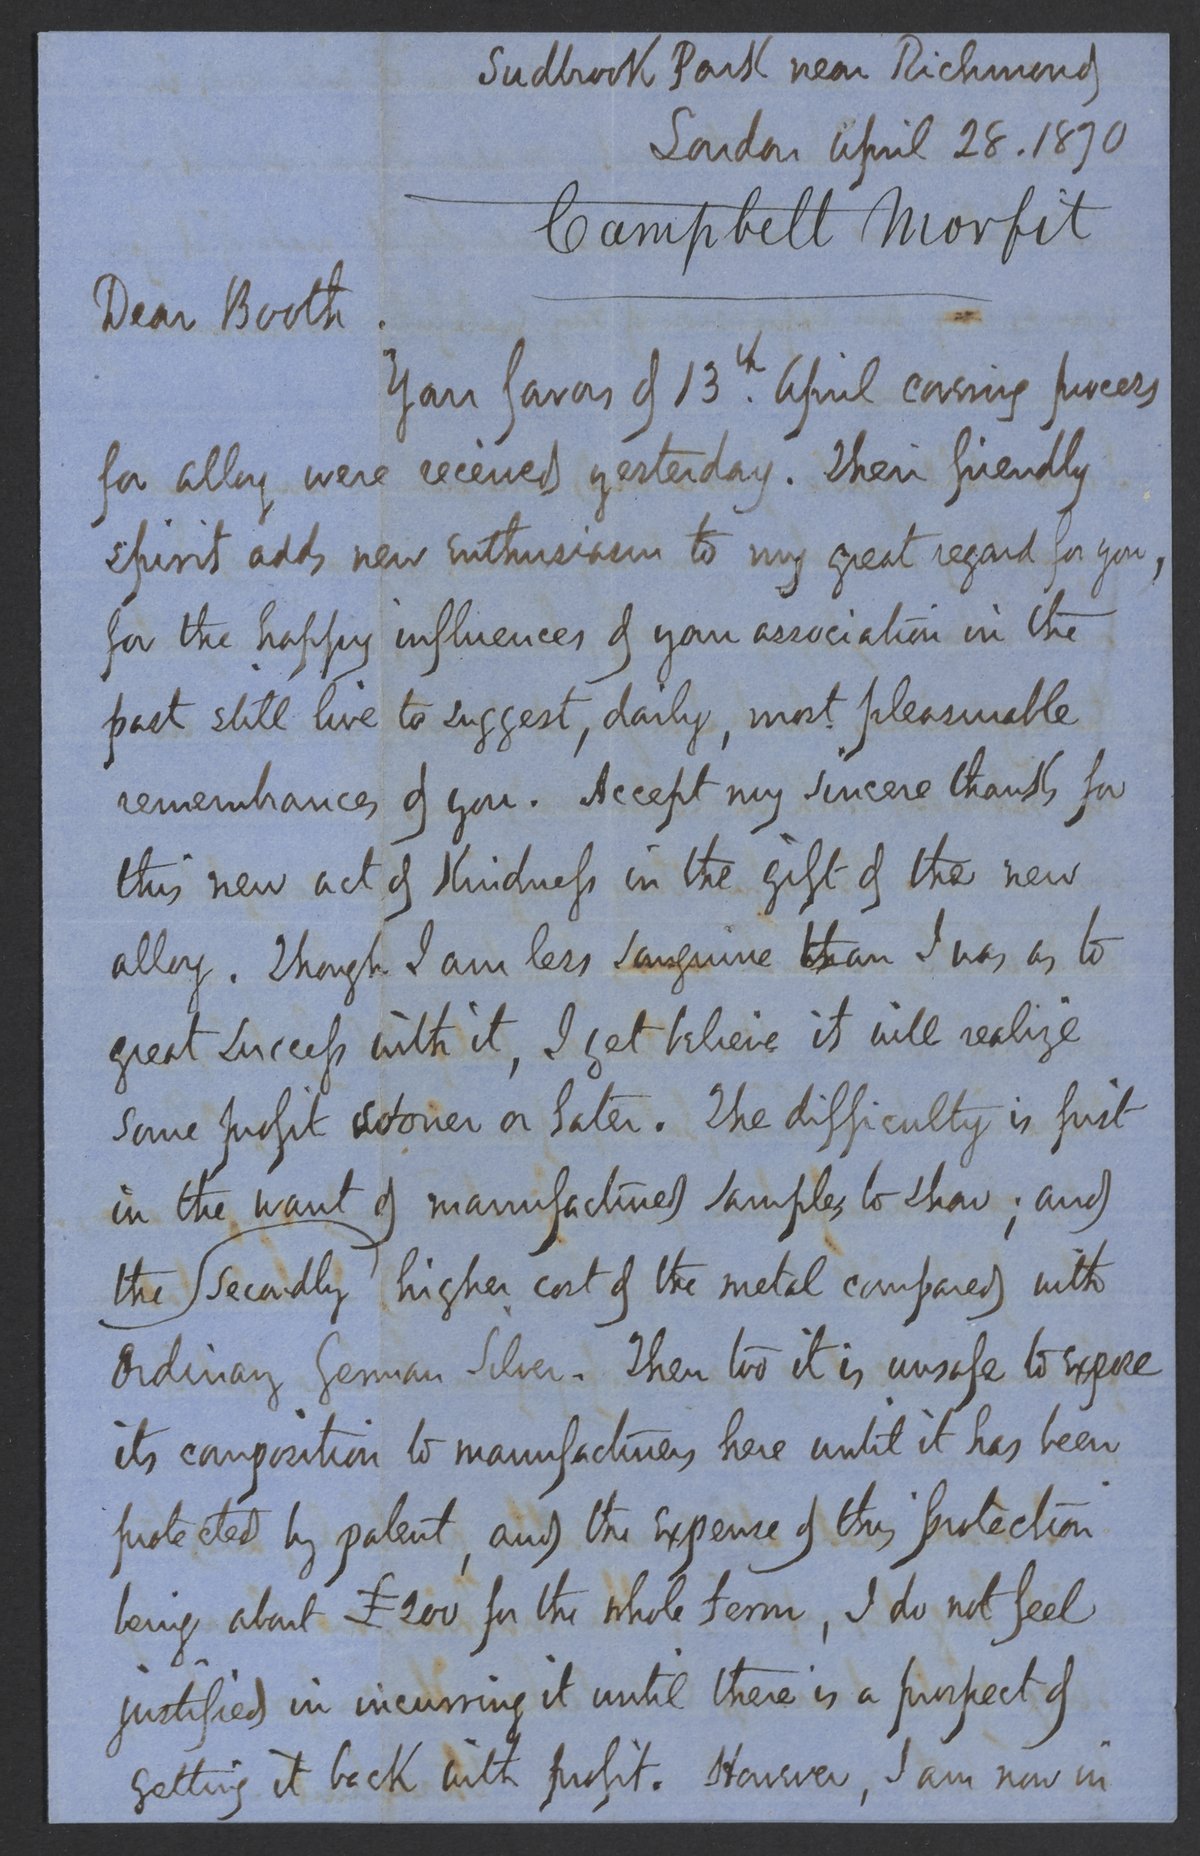 Sudbrook Park near Richmond
London April 28. 1870
Campbell Morfit
Dear Booth.
Your favors of 13th. April covering process
for alloy were received yesterday. Their friendly
spirit adds new enthusiasm to my great regard for you,
for the happy influences of your association in the
past still live to suggest, daily, most pleasurable
remembrances of you. Accept my sincere thanks for
this new act of Kindness in the gift of the new
alloy. Though I am less sanguine than I was as to
great success with it, I yet believe it will realize
some profit sooner or later. The difficulty is first
in the want of manufactured samples to show; and
the Secondly higher cost of the metal compared with
Ordinary German Silver. Then too it is unsafe to expose
its composition to manufacturers here until it has been
protected by patent, and the expense of this protection
being about £200 for the whole term, I do not feel
justified in incurring it until there is a prospect of
getting it back with profit. However, I am now in